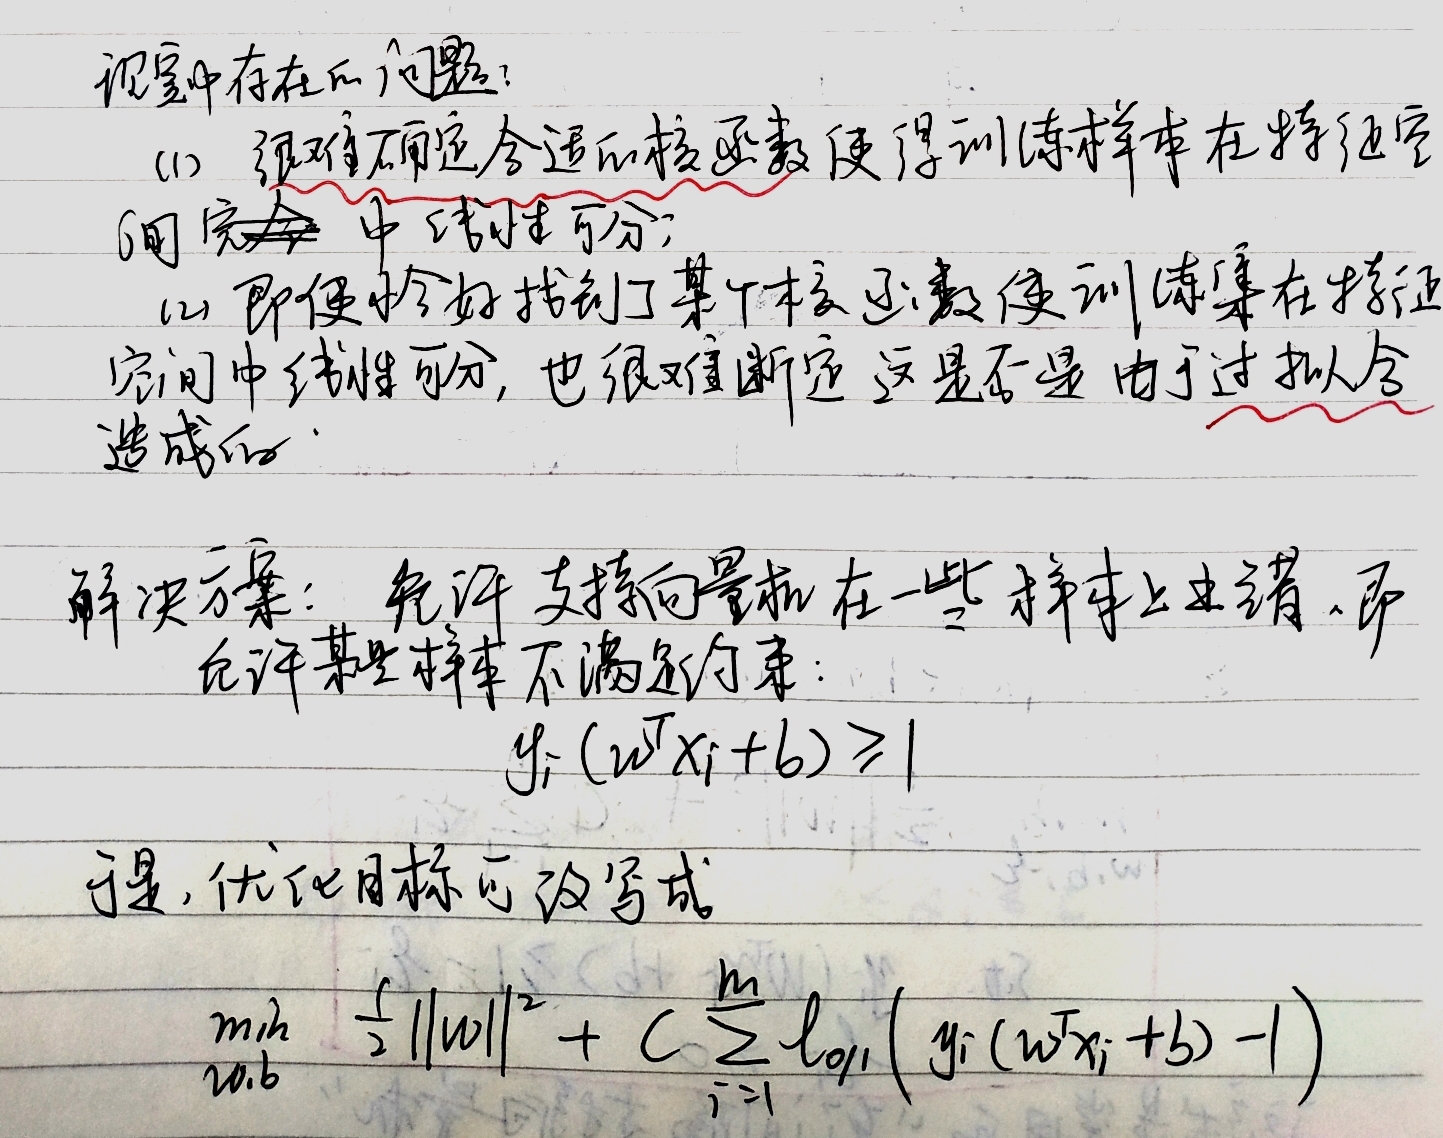 现实中存在的问题：
(1) 很难确定合适的核函数使得训练样本在特征空
间中线性可分；
(2) 即便恰好找到了某个核函数使训练集在特征
空间中线性可分，也很难断定这是否是由于过拟合
造成的.
解决方案：允许支持向量机在一些样本上出错、即
允许某些样本不满足约束：
yᵢ(wᵀxᵢ+b)≥1
于是，优化目标可改写成
min_{w,b} 1/2 ||w||² + C ∑_{i=1}^{m} ℓ_{0/1}(yᵢ(wᵀxᵢ+b)-1)